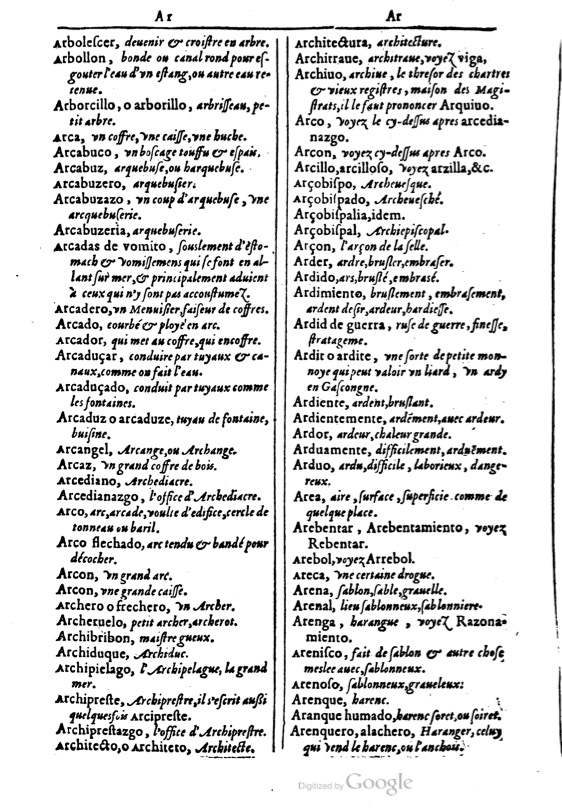 Ar
Arboleſcer, deuenir & croiſtre en arbre.
Arbollon, bonde ou canal rond pour eſ-
gouter l'eau d'vn eſtang, ou autre eau re-
tenue.
Arborcillo, o arborillo, arbriſſeau, pe-
tit arbre.
Arca, vn coffre, vne caiſſe, vne huche.
Arcabuco, vn boſcage touffu & eſpais.
Arcabuz, arquebuſe, ou harquebuſe.
Arcabuzero, arquebuſier.
Arcabuzazo, vn coup d'arquebuſe, vne
arcquebuſerie.
Arcabuzeria, arquebuſerie.
Arcadas de vomito, ſouslement d'eſto-
mach & vomiſſemens qui ſe font en al-
lant ſur mer, & principalement aduient
à ceux qui n'y ſont pas accouſtumez.
Arcadero, vn Menuiſier, faiſeur de coffres.
Arcado, courbé & ployé en arc.
Arcador, qui met au coffre, qui encoffre.
Arcaduçar, conduire par tuyaux & ca-
naux, comme on fait l'eau.
Arcaduçado, conduit par tuyaux comme
les fontaines.
Arcaduz o arcaduze, tuyau de fontaine,
buiſine.
Arcangel, Arcange, ou Archange.
Arcaz, vn grand coffre de bois.
Arcediano, Archediacre.
Arcedianazgo, l'office d'Archediacre.
Arco, arc, arcade, voulte d'edifice, cercle de
tonneau ou baril.
Arco flechado, arc tendu & bandé pour
décocher.
Arcon, vn grand arc.
Arcon, vne grande caiſſe.
Archero o frechero, vn Archer.
Archeruelo, petit archer, archerot.
Archibribon, maiſtre gueux.
Archiduque, Archiduc.
Archipielago, l'Archipelague, la grand
mer.
Archipreſte, Archipreſtre, il s'eſcrit auſsi
quelquesfois Arcipreſte.
Archipreſtazgo, l'office d'Archipreſtre.
Architecto, o Architeto, Architecte.
Ar
Architectura, architecture.
Architraue, architraue, voyez viga,
Archiuo, archiue, le threſor des chartres
& vieux regiſtres, maiſon des Magi-
ſtrats, il le faut prononcer Arquiuo.
Arco, voyez le cy-deſſus apres arcedia-
nazgo.
Arcon, voyez cy-deſſus apres Arco.
Arcillo, arcilloſo, voyez arzilla, &c.
Arçobiſpo, Archeueſque.
Arçobiſpado, Archeueſché.
Arçobiſpalia, idem.
Arçobiſpal, Archiepiſcopal.
Arçon, l'arçon de la ſelle.
Arder, ardre, bruſler, embraſer.
Ardido, ars, bruſlé, embrasé.
Ardimiento, bruſlement, embraſement,
ardent deſir, ardeur, hardieſſe.
Ardid de guerra, ruſe de guerre, fineſſe,
ſtratageme.
Ardit o ardite, vne ſorte de petite mon-
noye qui peut valoir vn liard, vn ardy
en Gaſcongne.
Ardiente, ardent, bruſlant.
Ardientemente, ardément, auec ardeur.
Ardor, ardeur, chaleur grande.
Arduamente, difficilement, arduëment.
Arduo, ardu, difficile, laborieux, dange-
reux.
Area, aire, ſurface, ſuperficie comme de
quelque place.
Arebentar, Arebentamiento, voyez
Rebentar.
Arebol, voyez Arrebol.
Areca, vne certaine drogue.
Arena, ſablon, ſable, grauelle.
Arenal, lieu ſablonneux, ſablonniere.
Arenga, harangue, voyez Razona-
miento.
Areniſco, fait de ſablon & autre choſe
meslee auec, ſablonneux.
Arenoſo, ſablonneux, graueleux.
Arenque, harenc.
Aranque humado, harenc ſoret, ou ſoiret.
Arenquero, alachero, Haranger, celuy
qui vend le harenc, ou l'anchois.
Digitized by Google